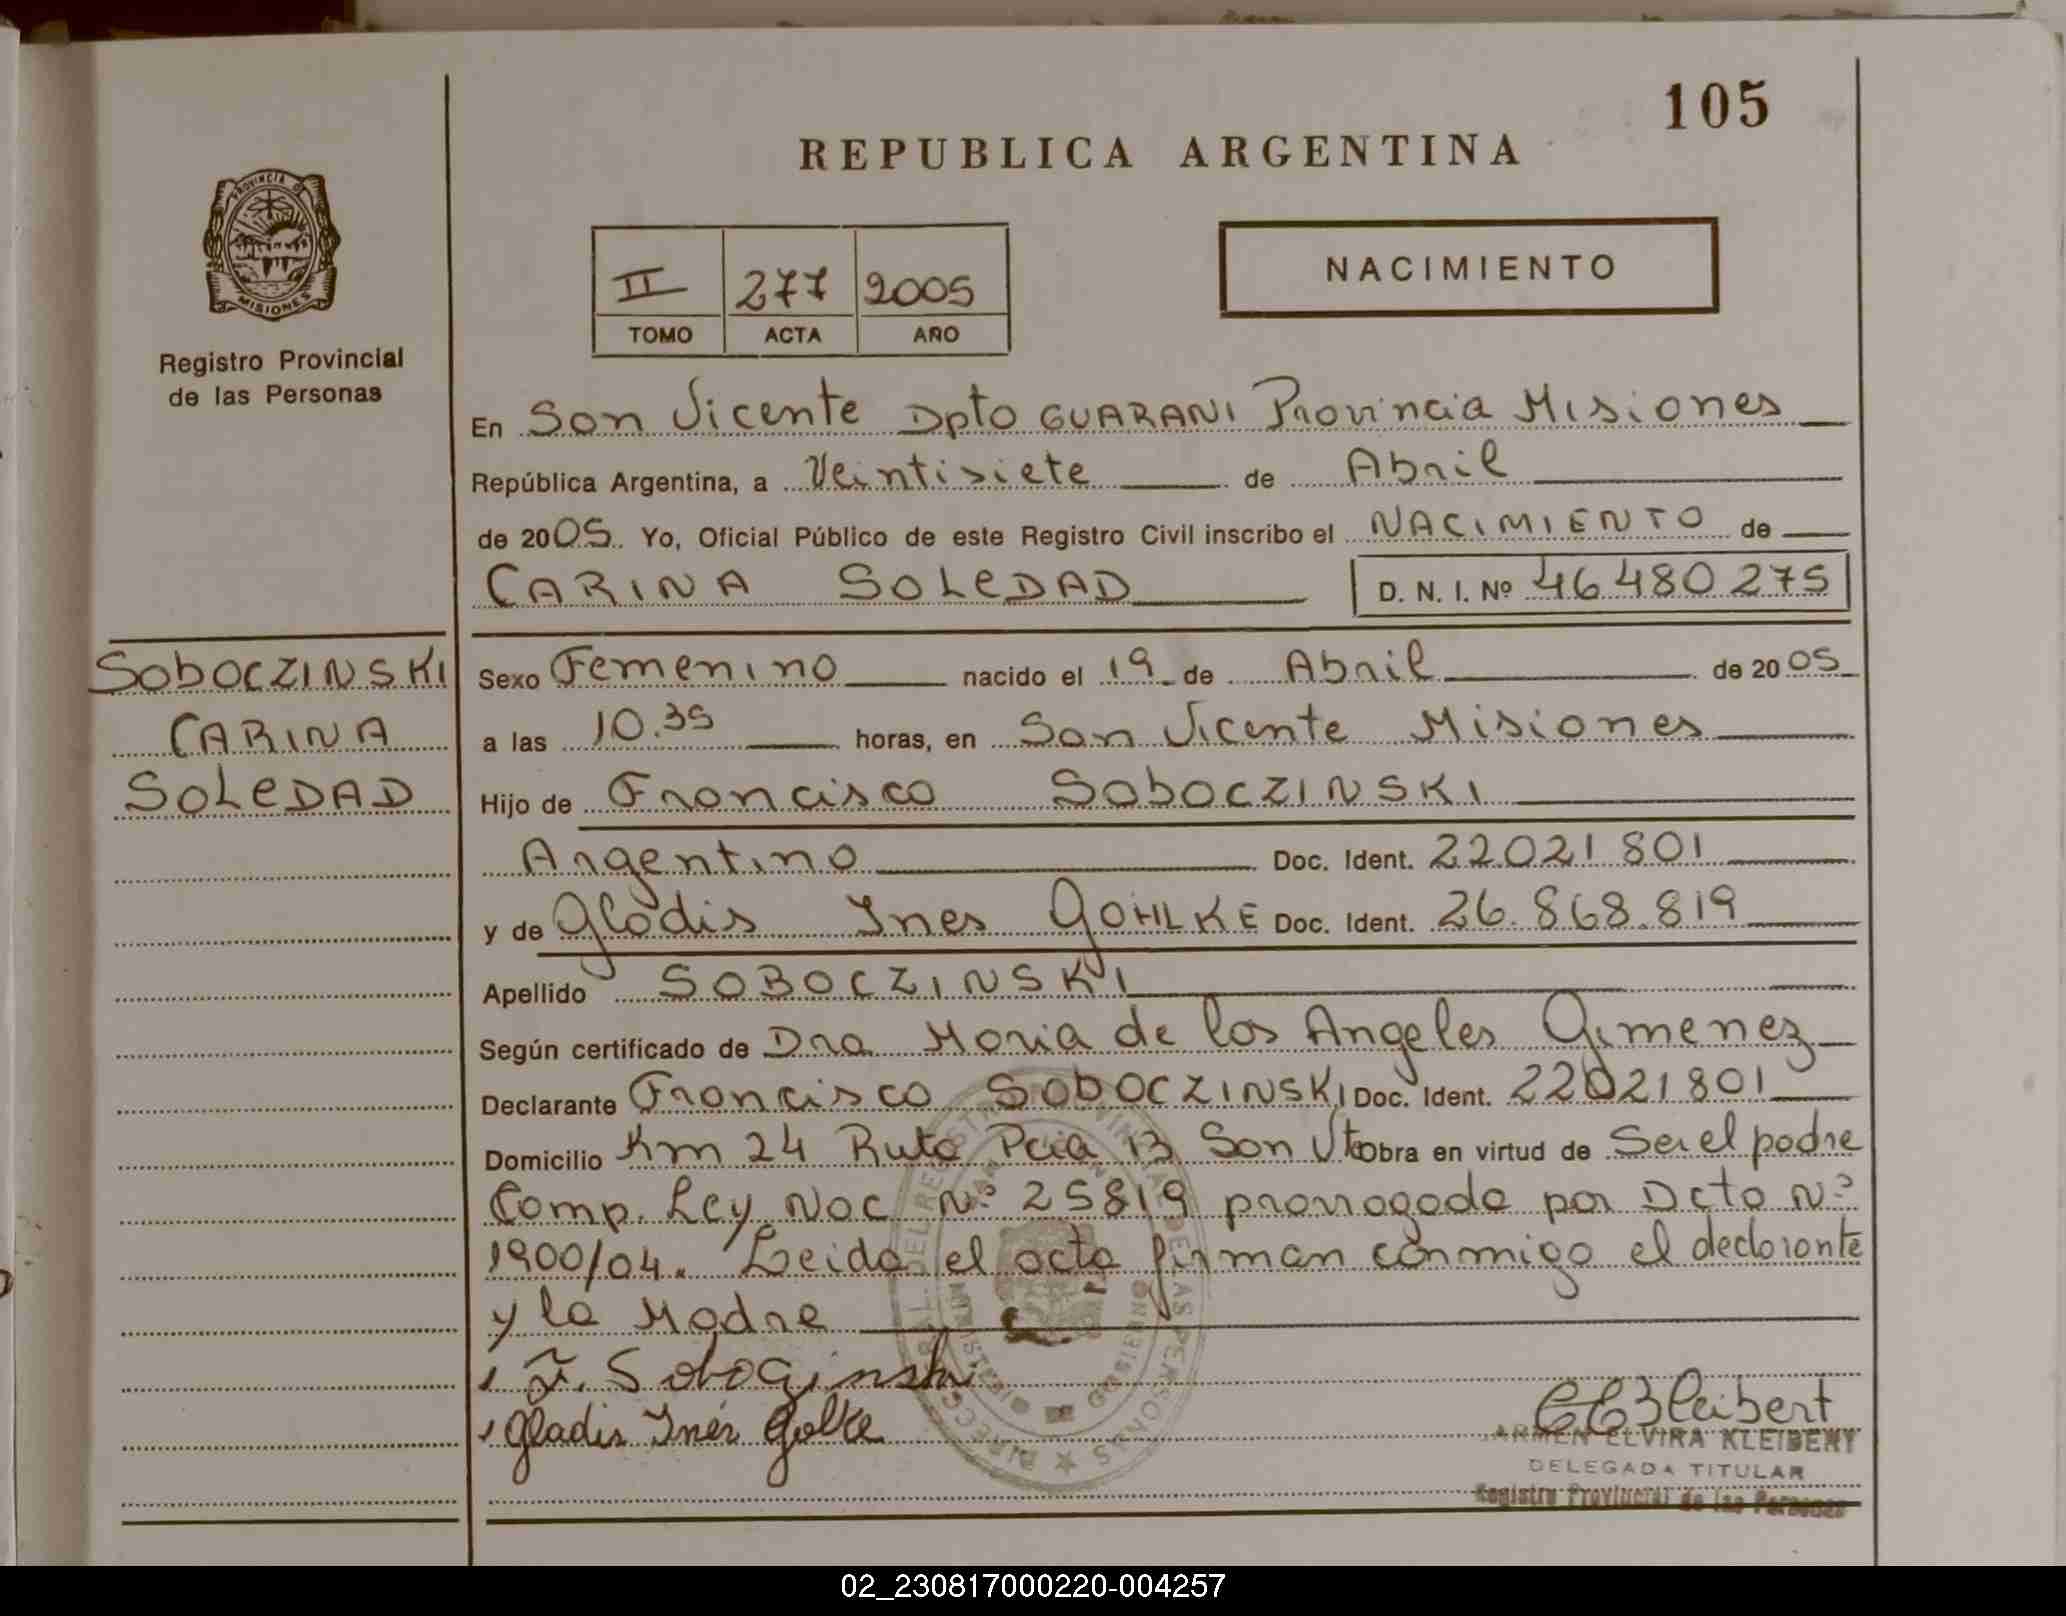 105
REPUBLICA ARGENTINA
PROVINCIA D
MISIONES
Registro Provincial
de las Personas
II 277 2005
TOMO ACTA AÑO
NACIMIENTO
En San Vicente Dpto GUARANI Provincia Misiones
República Argentina, a Veintisiete de Abril
de 2005. Yo, Oficial Público de este Registro Civil inscribo el NACIMIENTO de
CARINA SOLEDAD D. N. I. Nº 46480275
SobOCZINSKI
CARINA
SOLEDAD
Sexo Femenino nacido el 19 de Abril de 2005
a las 10.35 horas, en San Vicente Misiones
Hijo de Francisco SobOCZINSKI
Argentino Doc. Ident. 22021801
y de Gladis Ines GOHLKE Doc. Ident. 26.868.819
Apellido SOBOCZINSKI
Según certificado de Dra Maria de los Angeles Gimenez
Declarante Francisco SObOCZINSKI Doc. Ident. 22021801
Domicilio Km 24 Ruta Pcia 13 San Vte Obra en virtud de Ser el padre
Comp. Ley Nac Nº 25819 prorrogada por Dcto Nº
1900/04. Leida el acta firman conmigo el declarante
y la Madre
F. Soboczinski
Gladis Inés Golke
CEKleibert
ARMEN ELVIRA KLEIBERT
DELEGADA TITULAR
Registro Provincial de las Personas
02_230817000220-004257